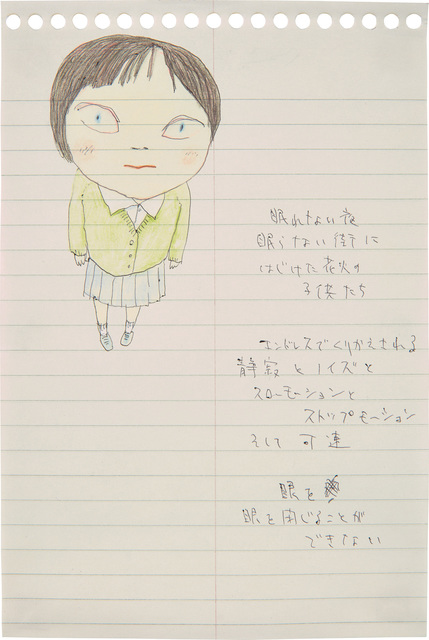 眠れない夜
眠らない街に
はじけた花火の
子供たち
エンドレスでくりかえされる
静寂とノイズと
スローモーションと
ストップモーション
そして可連
眼を
眼を閉じることが
できない